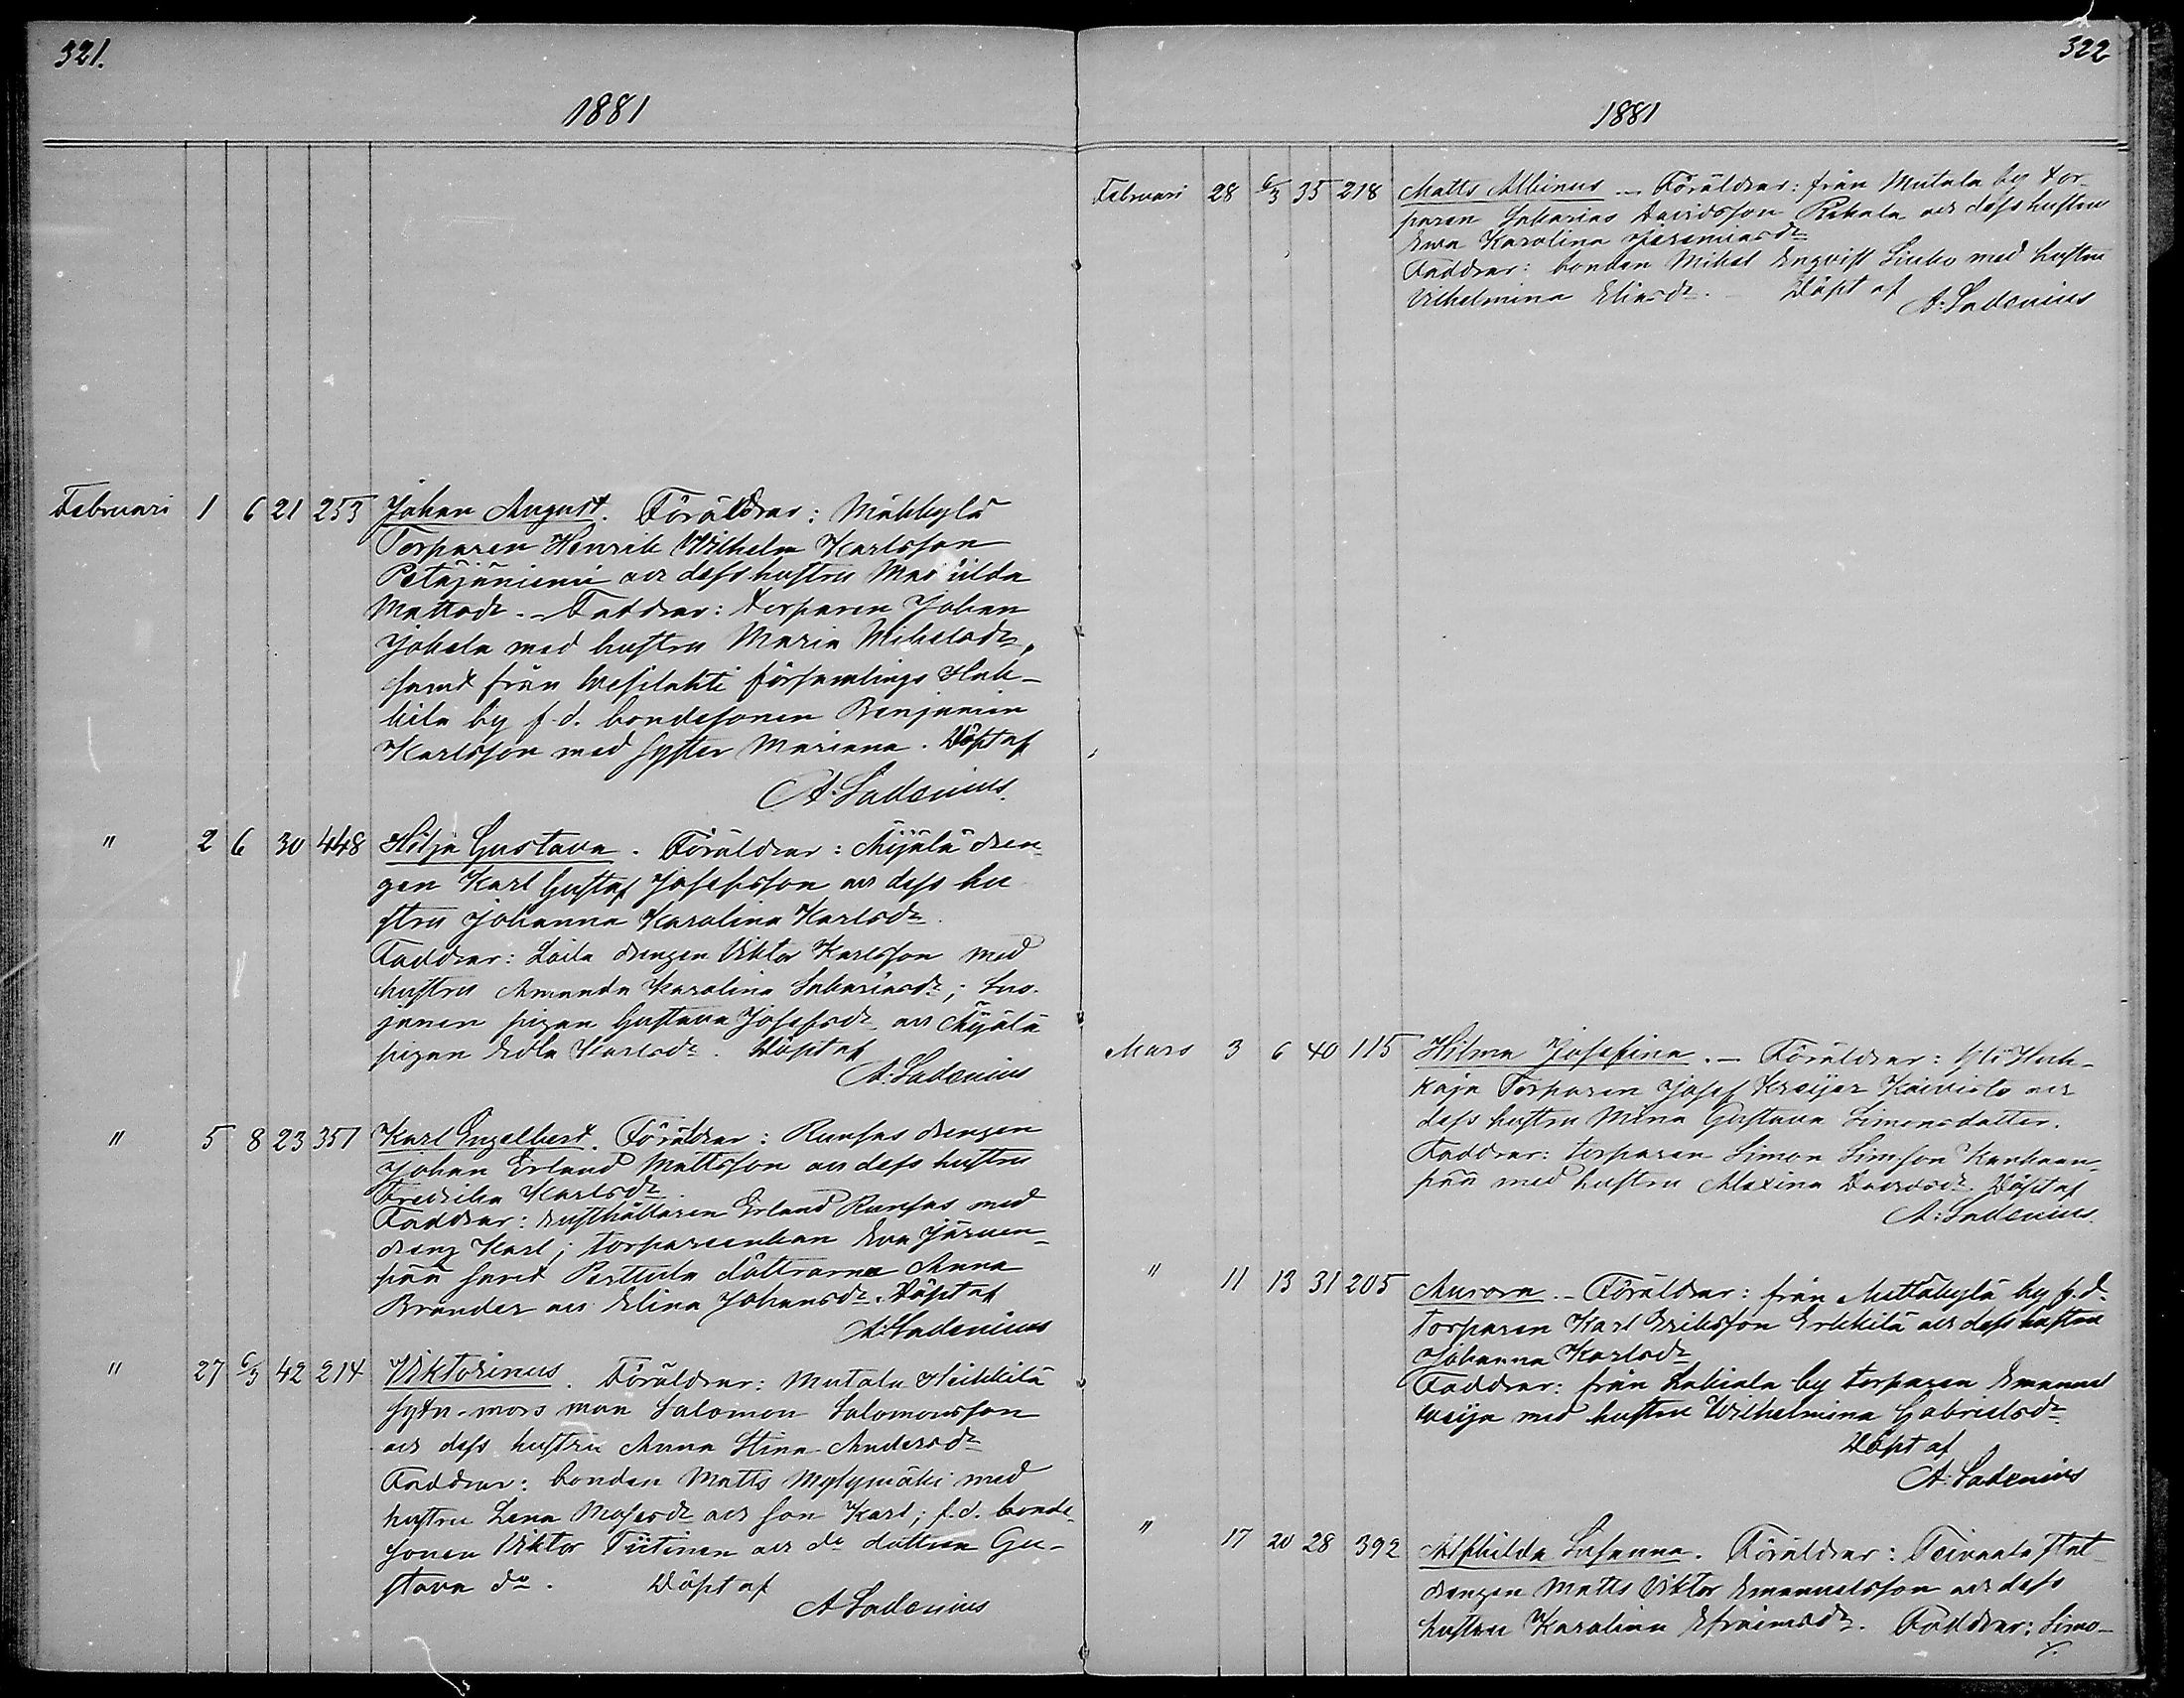 321.
1881
Februari 1 6 21 253 Johan August. Föräldrar: Mäkkylä
Torparen Henrik Wilhelm Karlsson
Petäjäniemi och dess hustru
Mattsdr. - Faddrar: torparen Johan
Jokela med hustru Maria Mikelsdr,
samt från Wesilahti församlings Hak-
kila by f.d. bondesonen Benjamin
Karlsson med syster Mariana. Döpt af
A. Ladenius.
" 2 6 30 448 Hilja Gustava. Föräldrar: Äijälä dren-
gen Karl Gustaf Josefsson och dess hu
stru Johanna Karolina Karlsdr.
Faddrar: Laila drengen Viktor Karlsson med
hustru Amanda Karolina Sakariasdr;
pigan Gustava Josefsdr och Äijälä
pigan Edla Karlsdr. Döpt af
A. Ladenius
" 5 8 23 351 Karl Engelbert. Föräldrar: Runsas drengen
Johan Erland Mattsson och dess hustru
Fredrika Karlsdr.
Faddrar: rusthållaren Erland Runsas med
dreng Karl; torpareenkan Eva Järven-
pää samt Perttula döttrarna Anna
Brander och Elina Johansdr. Döpt af
A. Ladenius
" 27 6/3 42 214 Viktorinus. Föräldrar: Mutala Heikkilä
sytn.-mors man Salomon Salomonsson
och dess hustru Anna Stina Andersdr
Faddrar: bonden Matts Myllymäki med
hustru Lena Mosesdr och son Karl; f.d. bonde-
sonen Viktor Tiitinen och do dottren Gu-
stava do. Döpt af
A Ladenius
322
1881
Februari 28 6/3 35 218 Matts Albinus - Föräldrar: från Mutala by tor-
paren Sakarias Davidsson Rekola och dess hustru
Ewa Karolina Jeremiasdr
Faddrar: bonden Mikel Engvist Simbo med hustru
Vilhelmina Eliasdr. - Döpt af
A. Ladenius
Mars 3 6 40 115 Hilma Josefina. - Föräldrar: Yli Huh-
kaja Torparen Josef Kreijer Koivisto och
dess hustru Mina Gustava Simonsdotter.
Faddrar: torparen Simon Simsson Kankaan-
pää med hustru Maxima Davidsdr. Döpt af
A. Ladenius.
" 11 13 31 205 Aurora. - Föräldrar: från Metsäkylä by f.d.
torparen Karl Eriksson Erkkilä och dess hustru
Johanna Karlsdr
Faddrar: från Lakiala by torparen Emanuel
Weija med hustru Wilhelmina Gabrielsdr
Döpt af
A. Ladenius
" 17 20 28 392 Alfhilda Susanna. Föräldrar: Teivaala stat-
drengen Matts Viktor Emanuelsson och dess
hustru Karolina Efraimsdr. Faddrar: Simo-